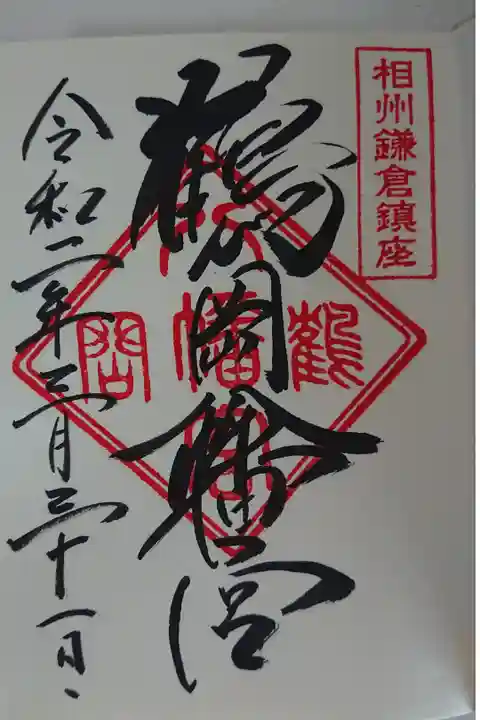 相州鎌倉鎮座
鶴岡八幡宮
鶴岡八幡宮
令和二年三月三十一日